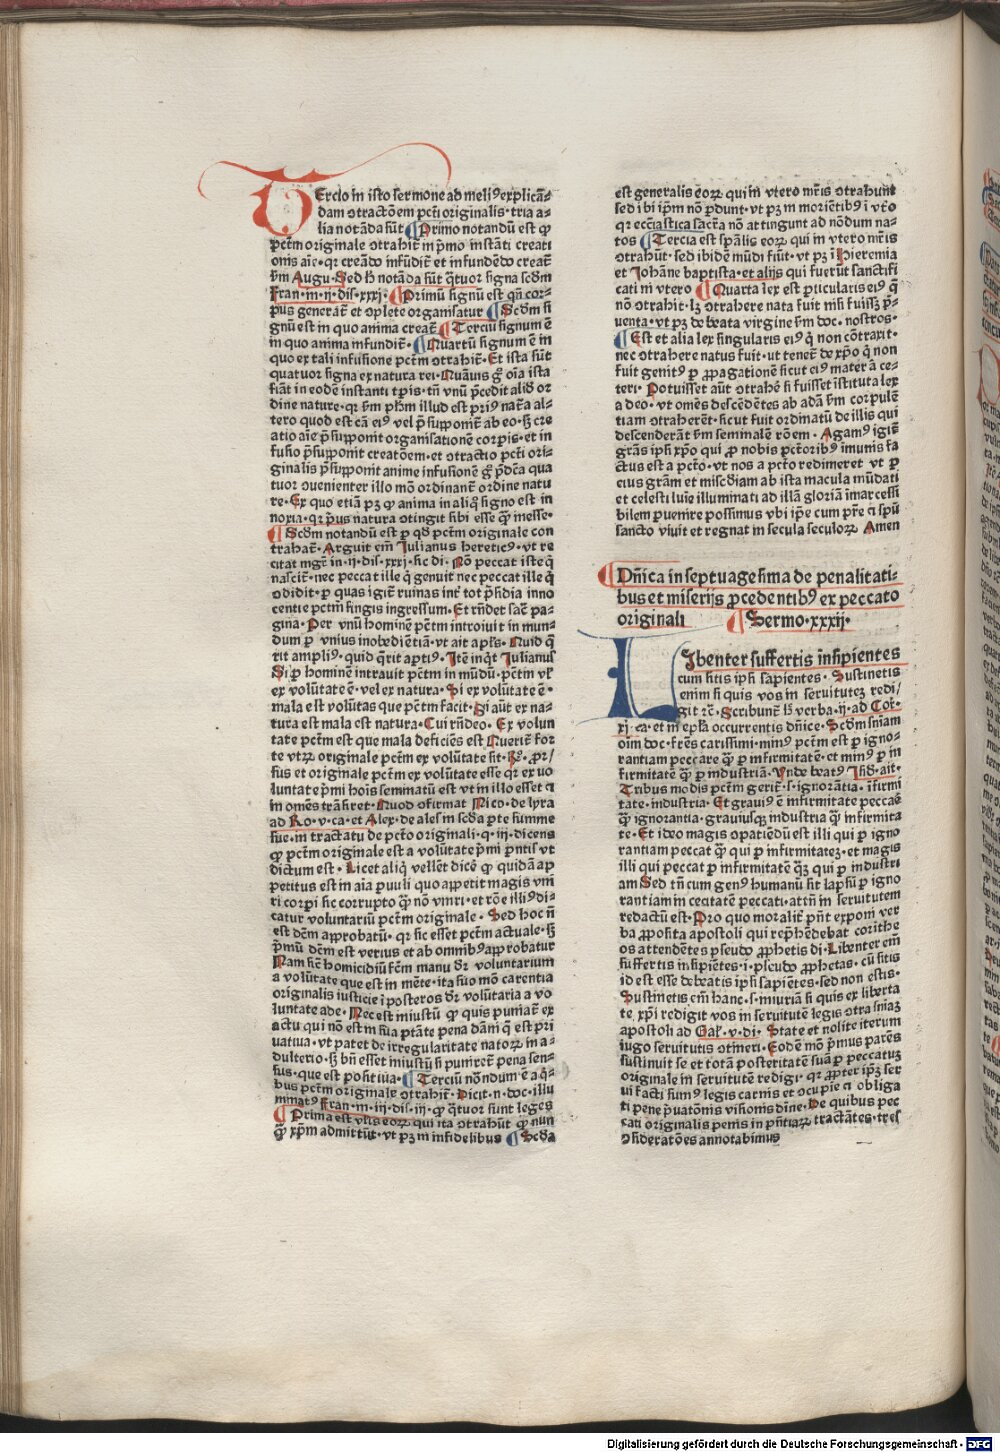 TErcio in isto sermone ad meliꝰ explicā⸗
dam ↄtractōem pctī originalis · tria a⸗
lia notāda sūt ¶ Primo notandū est ꝙ
pctm̄ originale ↄtrahit̄ in p̄mo instāti creati
onis aīe · qr creādo infūdit̄ et infundēdo creat̄
ẜm Augu · Sed h̄ notāda sūt q̄tuor signa scd̄m
Fran · m · ij · dis · xxxj · ¶ Primū signū est qn̄ cor⸗
pus generat̄ et ꝯplete organisatur ¶ Scd̄m si
gnū est in quo anima creat̄ ¶ Terciū signum ē
in quo anima infundit̄ · ¶ Quartū signum ē in
quo ex tali infusione pctm̄ ↄtrahit̄ · Et ista sūt
quatuor signa ex natura rei · Quāuis gͦ oīa ista
fiāt in eodē instanti tꝑis · tn̄ vnū p̄cedit aliđ or
dine nature · qr ẜm ph̄m illud est priꝰ nat̄a al⸗
tero quod est cā eiꝰ vel p̄supponit̄ ab eo · sꝫ cre
atio aīe p̄supponit organisationē corꝑis · et in
fusio p̄supponit creatōem · et ↄtractio pctī ori⸗
ginalis p̄supponit anime infusionē gͦ p̄dc̄a qua
tuor ↄuenienter illo mō ordinant̄ ordine natu
re · Ex quo etiā pꝫ ꝙ anima in aliqͦ signo est in
noxia · qr p̄us natura ↄtingit sibi esse q̄ꝫ inesse ·
¶ Scd̄m notandū est ꝑ qđ pctm̄ originale con
trahat̄ · Arguit em̄ Julianus hereticꝰ · vt re
citat mgr̄ in · ij · dis · xxxj · sic di · Nō peccat iste q̇
nascit̄ · nec peccat ille q̇ genuit nec peccat ille q̇
ↄdidit · ꝑ quas igit̄ ruinas int̄ tot p̄sidia inno
centie pctm̄ fingis ingressum · Et rn̄det sac̄ pa⸗
gina · Per vnū hominē pctm̄ introiuit in mun⸗
dum ꝑ vnius inobediētiā · vt ait apl̄s · Quid q̄
rit ampliꝰ · quid q̄rit aptiꝰ · Itē inq̇t Julianus
Si ꝑ hominē intrauit pctm̄ in mūdū · pctm̄ vl̄
ex volūtate ē · vel ex natura · Si ex volūtate ē ·
mala est volūtas que pctm̄ facit · Si aūt ex na⸗
tura est mala est natura · Cui rn̄deo · Ex volun
tate pctm̄ est que mala deficiēs est Querit̄ for
te vtrꝫ originale pctm̄ ex volūtate sit · Rͦ · pror⸗
sus et originale pctm̄ ex volūtate esse qr ex vo
luntate p̄mi hoīs seminatū est vt in illo esset ⁊
in omēs trāsiret · Quod ↄfirmat Nico · de lyra
ad Ro · v · ca · et Alex · de ales in scđa ꝑte summe
sue · in tractatu de pctō originali · q · iij · dicens
ꝙ pctm̄ originale est a volūtate p̄mi pn̄tis vt
dictum est · Licet aliq̇ vellēt dicē ꝙ quidā ap
petitus est in aīa ꝑuuli quo appetit magis vni
ri corpi sic corrupto q̄ꝫ nō vniri · et rōe illiꝰ di⸗
catur voluntariū pctm̄ originale · Sed hoc nō
est dēm approbatū · qr sic esset pctm̄ actuale · sꝫ
p̄mū dēm est verius et ab omnibꝰ approbatur
Nam sic̄ homicidiū fc̄m manu dr̄ voluntarium
a volūtate que est in mēte · ita suo mō carentia
originalis iusticie ī posteros dr̄ volūtaria a vo
luntate ade · Nec est miustū ꝙ quis puniat̄ ex
actu qui nō est in sua ptāte pena dāni q̄ est pri
uatiua · vt patet de irregularitate natorꝫ in a⸗
dulterio · sꝫ bn̄ esset iniustū si puniret̄ pena sen⸗
sus · que est positiua · ¶ Terciū nōndum ē a q̇⸗
bus pctm̄ originale ↄtrahit̄ · Dicit · n · doc · illu
minatꝰ Fran · m · iij · dis · iij · ꝙ q̄tuor sunt leges
¶ Prima est vtis eorꝫ qui ita ↄtrahūt ꝙ nun
q̄ꝫ xp̄m admittūt · vt pꝫ in infidelibus ¶ Scđa
est generalis eorꝫ qui in vtero mr̄is ↄtrahunt
sed ibi ip̄m nō ꝑdunt · vt pꝫ in morientibꝰ ī vtͦo
qr eccīastica sacr̄a nō attingunt ad nōdum na⸗
tos ¶ Tercia est sp̄alis eorꝫ qui in vtero mr̄is
ↄtrahūt · sed ibidē mūdi fiūt · vt pꝫ ī Hieremia
et Johāne baptista · et alijs qui fuerūt sanctifi
cati in vtero ¶ Quarta lex est ꝑticularis eiꝰ q̇
nō ↄtrahit · lꝫ ↄtrahere nata fuit nisi fuissꝫ p̄⸗
uenta · vt pꝫ de beata virgine ẜm doc · nostros ·
¶ Est et alia lex singularis eiꝰ q̇ non cōtraxit ·
nec ↄtrahere natus fuit · vt tenet̄ de xp̄o q̇ non
fuit genitꝰ ꝑ ꝓpagationē sicut eiꝰ mater ⁊ ce⸗
teri · Potuisset aūt ↄtrahē si fuisset īstituta lex
a deo · vt omēs descēdētes ab adā ẜm corpulē
tiam ↄtraherēt · sicut fuit ordinatū de illis qui
descenderāt ẜm seminalē rōem · Agamꝰ igit̄
grās ip̄i xp̄o qui ꝓ nobis pctōribꝰ imunis fa
ctus est a pctō · vt nos a pctō redimeret vt ꝑ
eius grām et miscd̄iam ab ista macula mūdati
et celesti luīe illuminati ad illā gloriā īmarcessi
bilem ꝑuenire possimus vbi ip̄e cum pr̄e ⁊ sp̄u
sancto viuit et regnat in secula seculorꝫ Amen
¶ Dn̄ica in septuagesima de penalitati⸗
bus et miserijs ꝓcedentibꝰ ex peccato
originali ¶ Sermo · xxxij ·
LIbenter suffertis insipientes
cum sitis ip̄si sapientes · Sustinetis
enim si quis vos in seruitutez redi⸗
git ⁊c̄ · Scribunt̄ h̄ verba · ij · ad Cor̄ ·
xj · ca · et in epl̄a occurrentis dn̄ice · Scd̄m sn̄iam
oīm doc · frēs carissimi · minꝰ pctm̄ est ꝑ igno⸗
rantiam peccare q̄ꝫ ꝑ infirmitatē · et minꝰ ꝑ in
firmitatē q̄ꝫ ꝑ industriā · Vnde beatꝰ Jsid̄ · ait ·
Tribus modis pctm̄ gerit̄ · s · ignorātia · īfirmi
tate · industria · Et grauiꝰ ē infirmitate peccaē
q̄ꝫ ignorantia · grauiusqꝫ industria q̄ꝫ infirmita
te · Et ideo magis ↄpatiēdū est illi qui ꝑ igno
rantiam peccat q̄ꝫ qui ꝑ infirmitatez · et magis
illi qui peccat ꝑ infirmitatē q̄ꝫ qui ꝑ industri
am Sed tn̄ cum genꝰ humanū sit lapsū ꝑ igno
rantiam in cecitatē peccati · attn̄ in seruitutem
redactū est · Pro quo moralit̄ pn̄t exponi ver
ba ꝓposita apostoli qui rep̄hēdebat corīthe
os attendētes pseudo ꝓphetis di · Libenter em̄
suffertis insipiētes · i · pseudo ꝓphetas · cū sitis
id est esse debeatis ip̄si sapiētes · sed non estis ·
Sustinetis em̄ hanc · s · iniuriā si quis ex liberta
te xp̄i redigit vos in seruitutē legis ↄtra sn̄iaꝫ
apostoli ad Gal̄ · v · di · State et nolite iterum
iugo seruitutis ↄtineri · Eodē mō p̄mus parēs
sustinuit se et totā posteritatē suā ꝑ peccatuꝫ
originale in seruitutē redigi · qr ꝓpter ip̄ꝫ ser
ui facti sumꝰ legis carnis et ↄcupīe ⁊ obliga
ti pene p̄uatōnis visionis diuīe · De quibus pec
cati originalis penis in pn̄tiarꝫ tractātes · tres
ↄsideratōes annotabimus
Digitalisierung gefördert durch die Deutsche Forschungsgemeinschaft - DFG